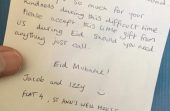 so much for your
kindness during this difficult time
Please accept this little gift from
us during Eid should you need
anything just call.
Eid Mubarak!
Jacob and Izzy
FLAT 4, ST